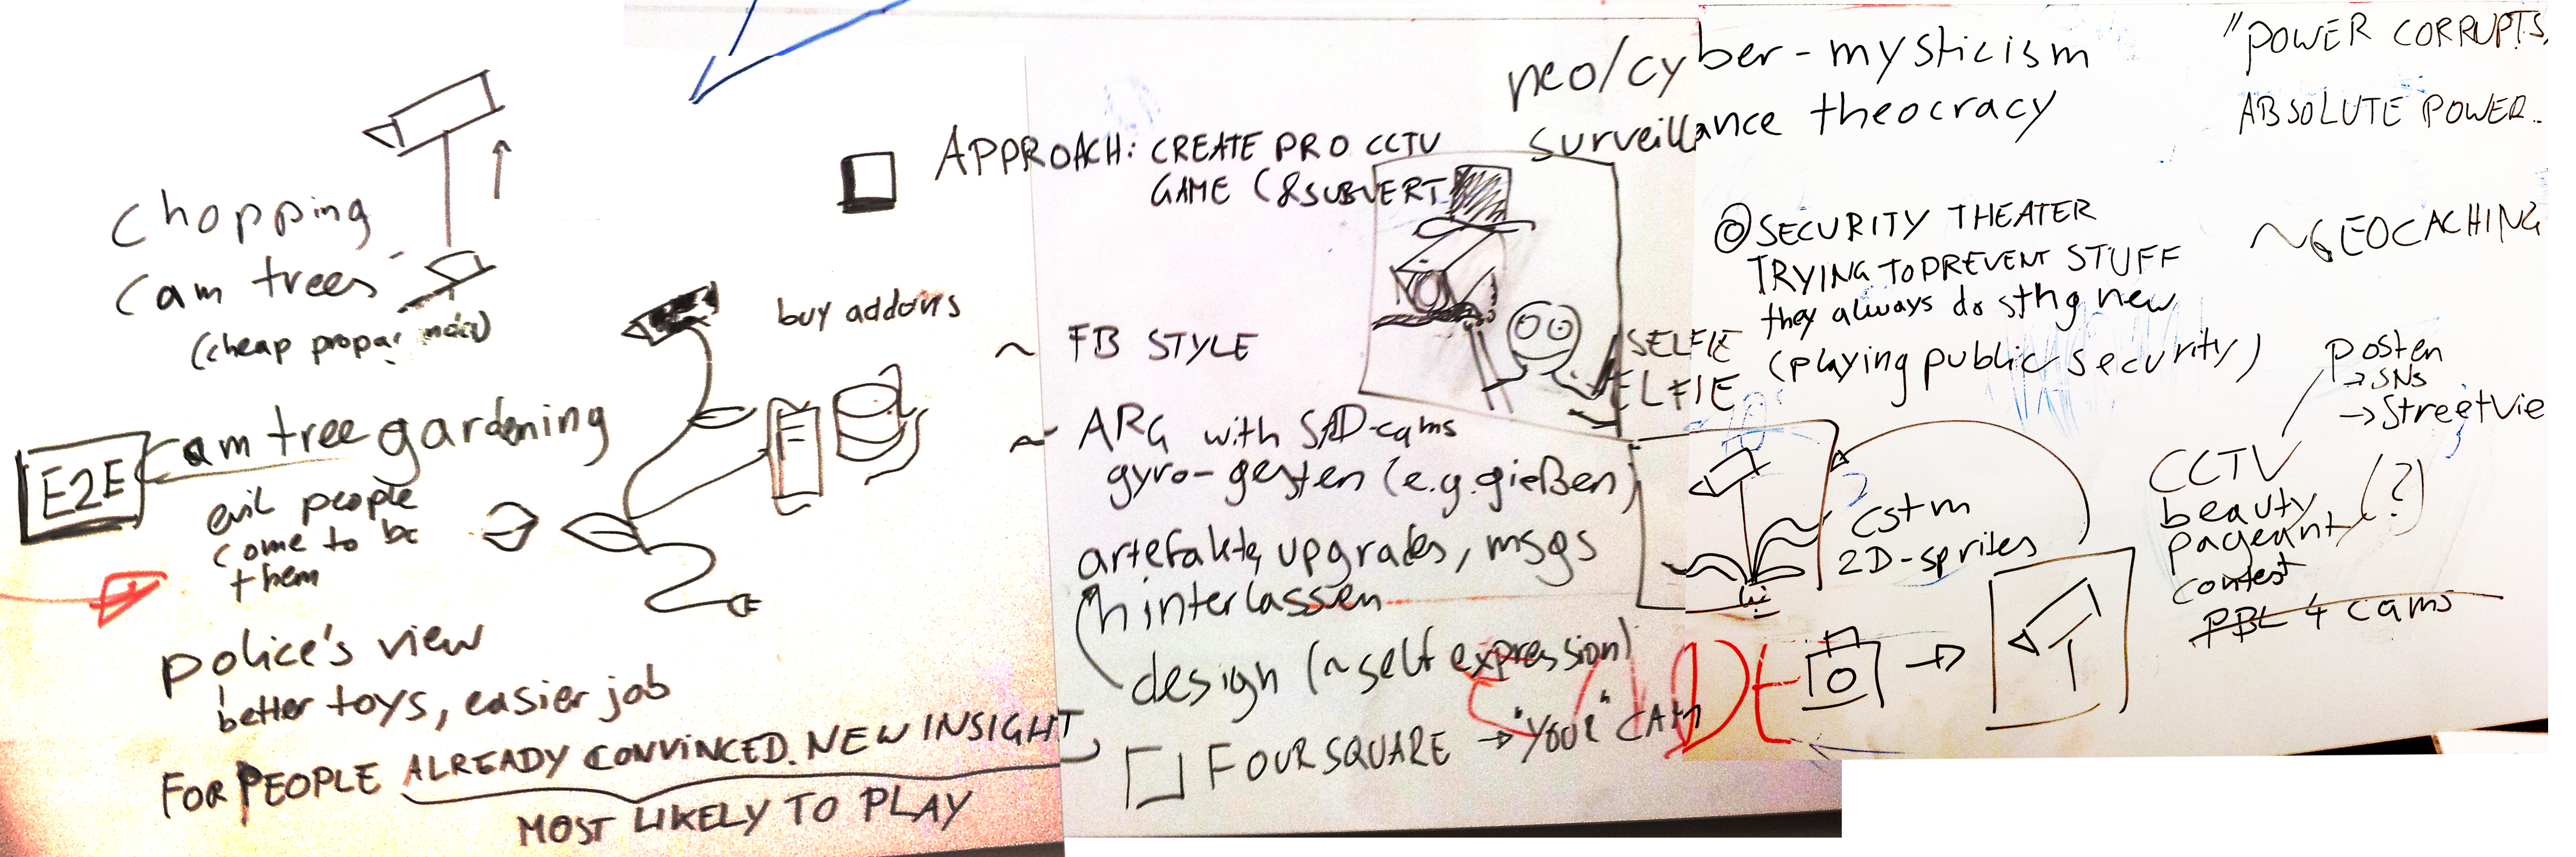 chopping
cam trees
(cheap
E2E
cam tree gardening
evil people
come to be
them
police's view
better toys, easier job
FOR PEOPLE ALREADY CONVINCED. NEW INSIGHT
MOST LIKELY TO PLAY
buy addons
APPROACH: CREATE PRO CCTV
GAME (& SUBVERT
~ FB STYLE
~ ARG with SAD-cams
gyro-gesten (e.g. gießen)
artefakte, upgrades, msgs
hinterlassen
design (~self expression)
FOURSQUARE → "YOUR" CAM
SELFIE
ELFIE
neo/cyber-mysticism
surveillance theocracy
"POWER CORRUPTS,
ABSOLUTE POWER..
SECURITY THEATER
TRYING TO PREVENT STUFF
they always do sthg new
(playing public security)
~GEOCACHING
posten
→ SNs
→ StreetVie
cstm
2D-sprites
CCTV
beauty
pageant (?)
contest
PBL 4 cams